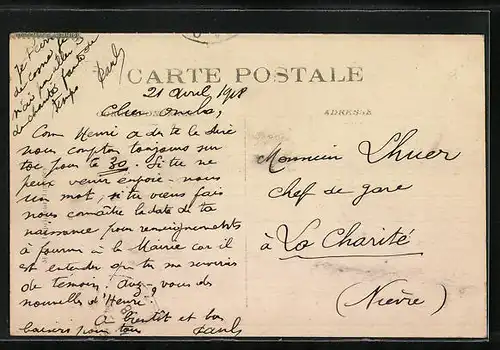 CARTE POSTALE
ADRESSE
21 avril 1918
Cher oncle,
Com Henri a du te le dire
nous comptons toujours sur
toi pour le 30. Si tu ne
peux venir envoie-nous
un mot, si tu viens fais
nous connaître la date de ta
naissance pour renseignements
à fournir à la Mairie car il
est entendu que tu me serviras
de temoin. Avez-vous des
nouvelles d'Henri.
A bientôt et bons
baisers pour tous
Pauls
Monsieur Lhuer
chef de gare
à La Charité
(Nièvre)
de
mais
temps
Pauls